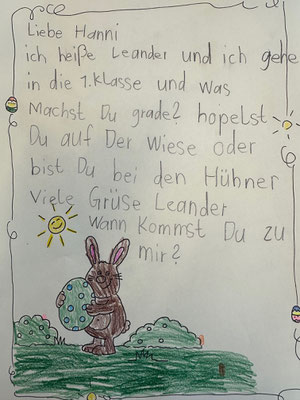 Liebe Hanni
ich heiße Leander und ich gehe
in die 1.Klasse und was
Machst Du grade? hopelst
Du auf Der Wiese oder
bist Du bei den Hühner
Viele Grüse Leander
Wann Kommst Du zu
mir?